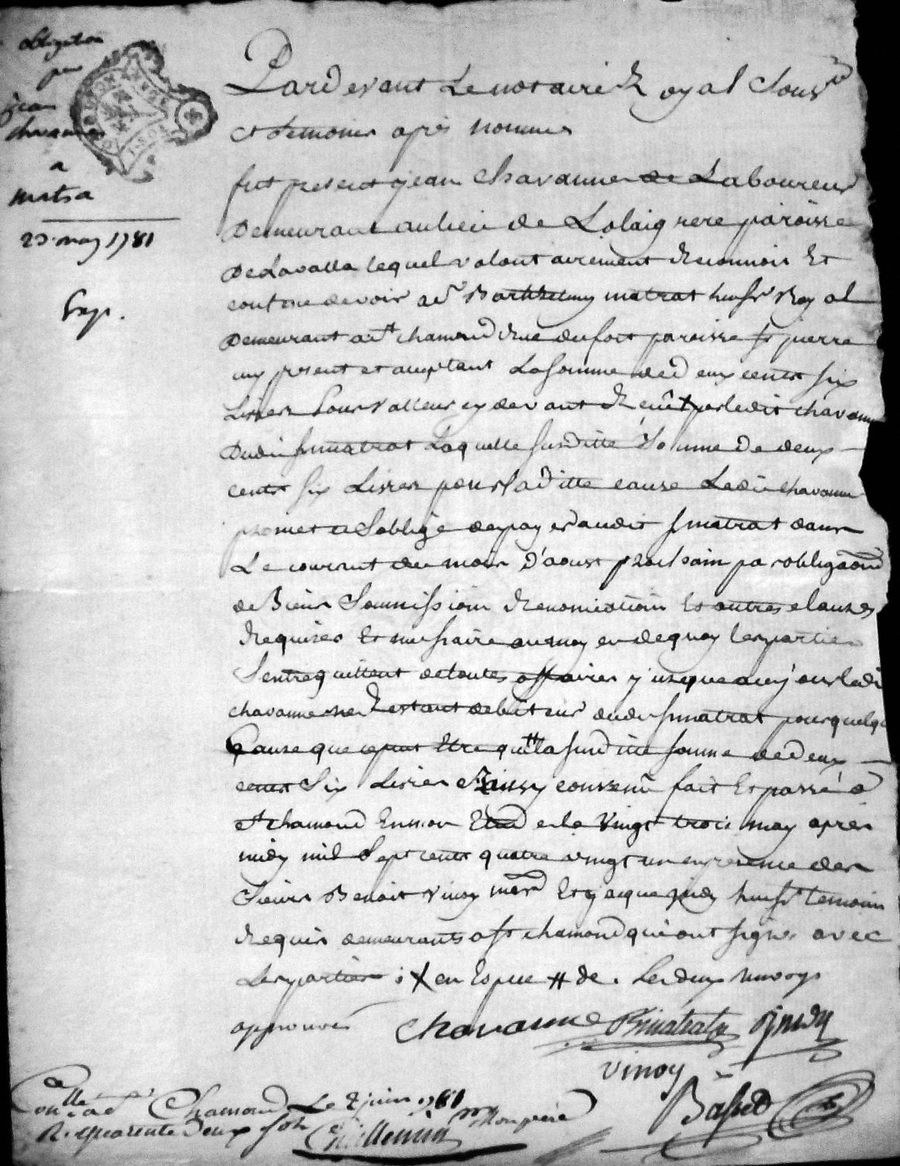 obligation
par
jean
chavanne
a
matra
23 may 1781
Exp.
Pardevant Le notaire Royal Sous.né
Et temoins apres nommes
fut present jean chavanne Laboureur
Demeurant au lieu de paroisse
De Lavalla lequel volontairement Reconnois Et
confesse devoir a sr Barthelemy matrat huissr Royal
Demeurant a st chamond Rue du fort paroisse st pierre
icy present et acceptant La Somme de deux cents six
Livres pour valleur cy devant Recue par ledit chavanne
Dudit sr matrat Laquelle susditte Somme De deux
cents six Livres pour sa ditte cause Ledit chavanne
promet et Soblige de payer audit sr matrat dans
Le courant du mois D'aoust prochain par obligaõnd
de Biens Soumissions Renonciations Et autres clauses
Requises Et necessaires au moyen de quoy les parties
S'entrequittent de toutes affaires jusque a aujour ledit
chavanne ne Restant debiteur dudit sr matrat pour quelque
Cause que ce puit Etre que la susditte somme de deux
cents Six Livres Ainsy convenu fait Et passé a
st chamond En mon Etude le vingt trois may apres
midy mil sept cents quatre vingt un en presence des
Sieurs Benoit vinoy mard Et jacque huissr temoins
Requis demeurants a st chamond qui ont signes avec
Les parties : X en Espece # de . Les deux renvoys
approuves chavanne Bmatrat
vinoy
Conlle a st Chamond Le 2 juin 1781
R. quarente Deux sols